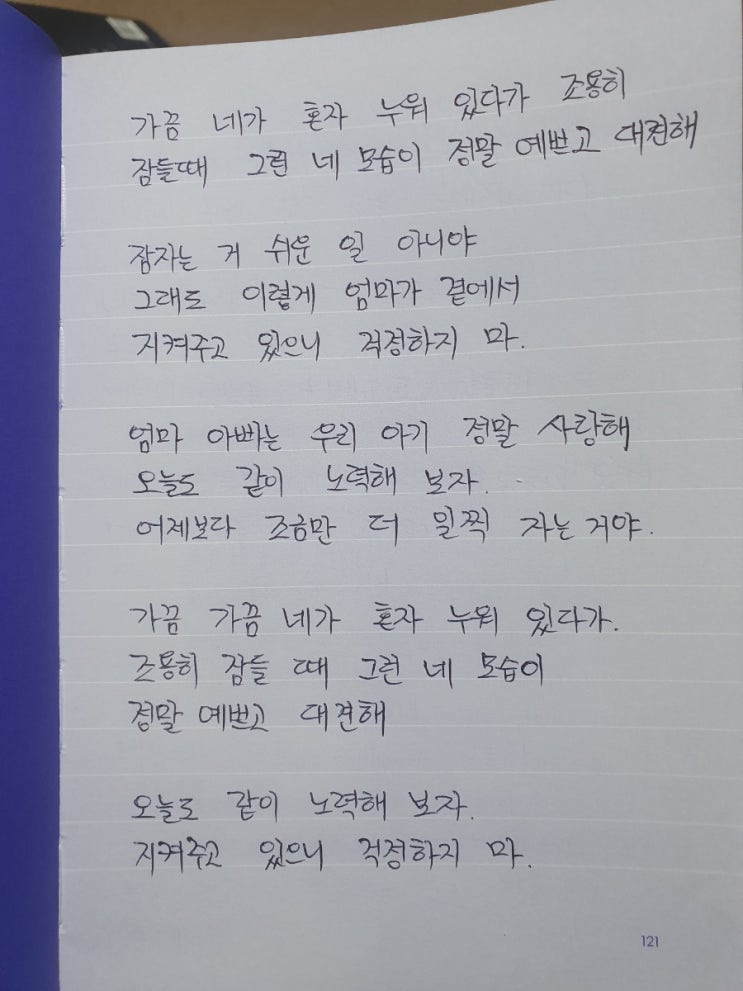 가끔 네가 혼자 누워 있다가 조용히
잠들때 그런 네 모습이 정말 예쁘고 대견해
잠자는 거 쉬운 일 아니야
그래도 이렇게 엄마가 곁에서
지켜주고 있으니 걱정하지 마.
엄마 아빠는 우리 아기 정말 사랑해
오늘도 같이 노력해 보자.
어제보다 조금만 더 일찍 자는 거야.
가끔 가끔 네가 혼자 누워 있다가.
조용히 잠들 때 그런 네 모습이
정말 예쁘고 대견해
오늘도 같이 노력해 보자.
지켜주고 있으니 걱정하지 마.
121